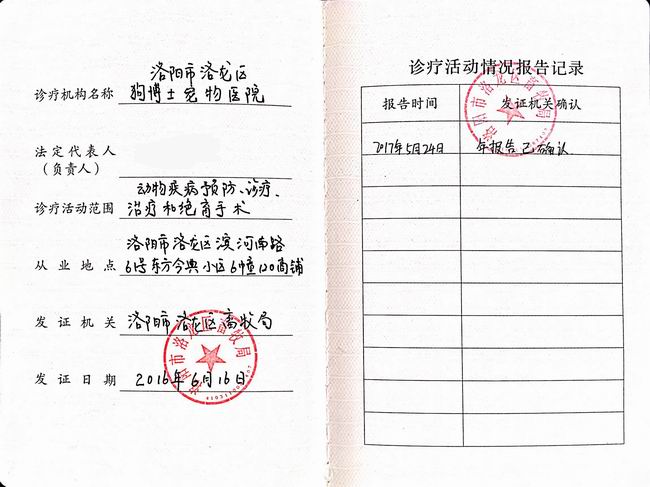 洛阳市洛龙区
诊疗机构名称 狗博士宠物医院
法定代表人
（负责人）
动物疾病预防、诊疗、
诊疗活动范围 治疗和绝育手术
洛阳市洛龙区滨河南路
从业地点 61号东方今典小区6幢120商铺
发证机关 洛阳市洛龙区畜牧局
洛阳市洛龙区畜牧局
发证日期 2016年6月16日
诊疗活动情况报告记录
报告时间 发证机关确认
洛阳市洛龙区畜牧局
2017年5月24日 年报告已确认